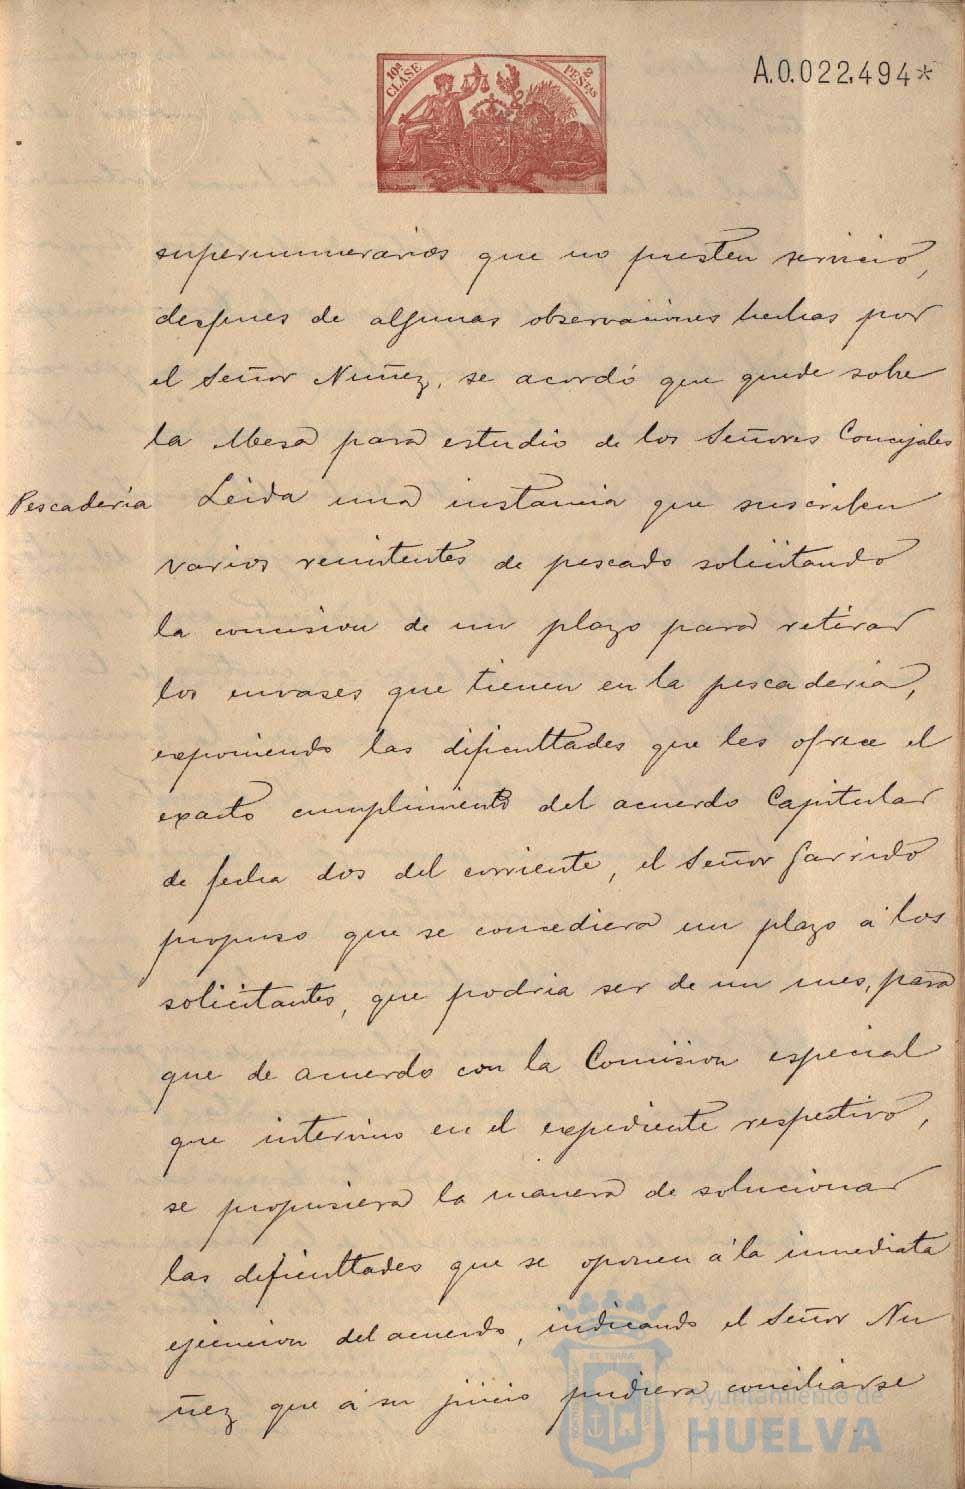 10ª CLASE
2 PESETAS
A.0.022,494*
supernumerarios que no presten servicio,
despues de algunas observaciones hechas por
el Señor Nuñez, se acordó que quede sobre
la Mesa para estudio de los Señores Concejales
Pescaderia
Leida una instancia que suscriben
varios remitentes de pescado solicitando
la concision de un plazo para retirar
los envases que tienen en la pescaderia,
exponiendo las dificultades que les ofrece el
exacto cumplimiento del acuerdo Capitular
de fecha dos del corriente, el Señor Garrido
propuso que se concediera un plazo á los
solicitantes, que podria ser de un mes, para
que de acuerdo con la Comision especial
que intervino en el expediente respectivo,
se propusiera la manera de solucionar
las dificultades que se oponen á la inmediata
ejecucion del acuerdo, indicando el Señor Nu
ñez que á su juicio pudiera conciliarse
Ayuntamiento de
HUELVA